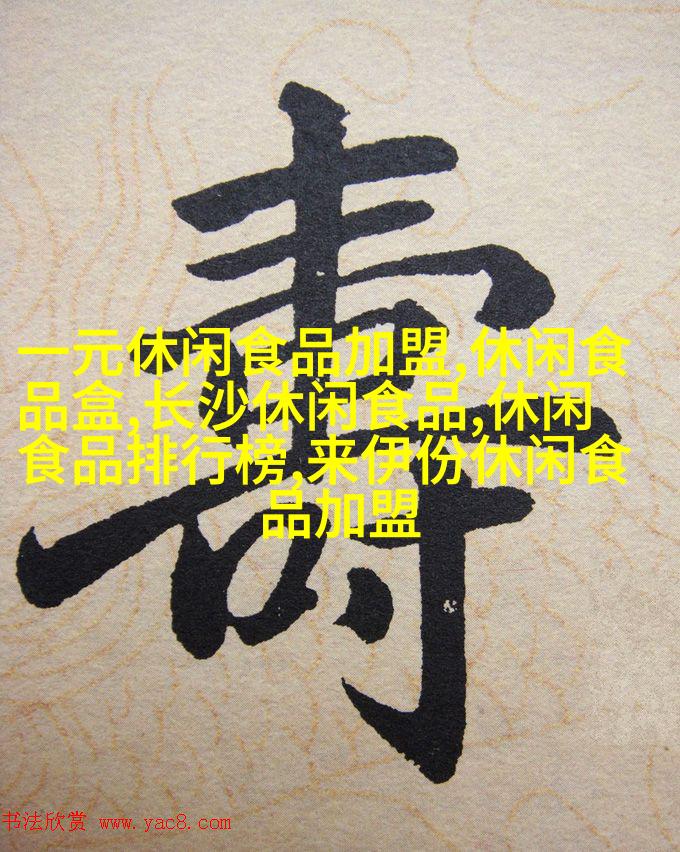 壽
一元休闲食品加盟,休闲食
品盒,长沙休闲食品,休闲
食品排行榜,来伊份休闲食
品加盟
书法欣赏 www.yac8.com